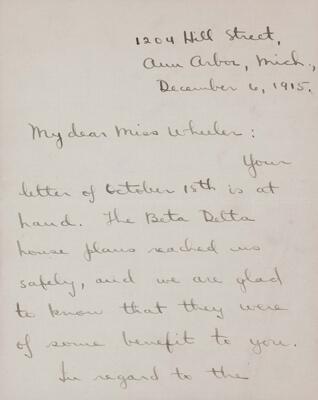 1204 Hill Street,
Ann Arbor, Mich.,
December 6, 1915.
My dear Miss Wheeler:
Your
letter of October 15th is at
hand. The Beta Delta
house plans reached us
safely, and we are glad
to know that they were
of some benefit to you.
In regard to the